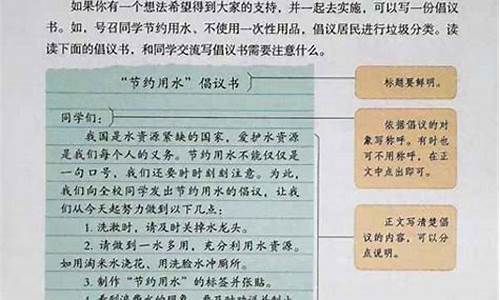 如果你有一个想法希望得到大家的支持，并一起去实施，可以写一份倡议
书。如，号召同学节约用水、不使用一次性用品，倡议居民进行垃圾分类。读
读下面的倡议书，和同学交流写倡议书需要注意什么。
“节约用水”倡议书
标题要鲜明。
同学们：
依据倡议的对
象写称呼。有时也
可不用称呼，在正
文中点出即可。
我国是水资源紧缺的国家，爱护水资源
是我们每个人的义务。节约用水不能仅仅是
一句口号，我们还要时时刻刻注意。为此，
我们向全校同学发出节约用水的倡议，让我
们从今天起努力做到以下几点：
1. 洗漱时，请及时关掉水龙头。
2. 请做到一水多用，充分利用水资源。
如用淘米水浇花、用洗脸水冲厕所。
3. 制作“节约用水”的标签并张贴。
正文写清楚倡
议的内容，可以分
点说明。